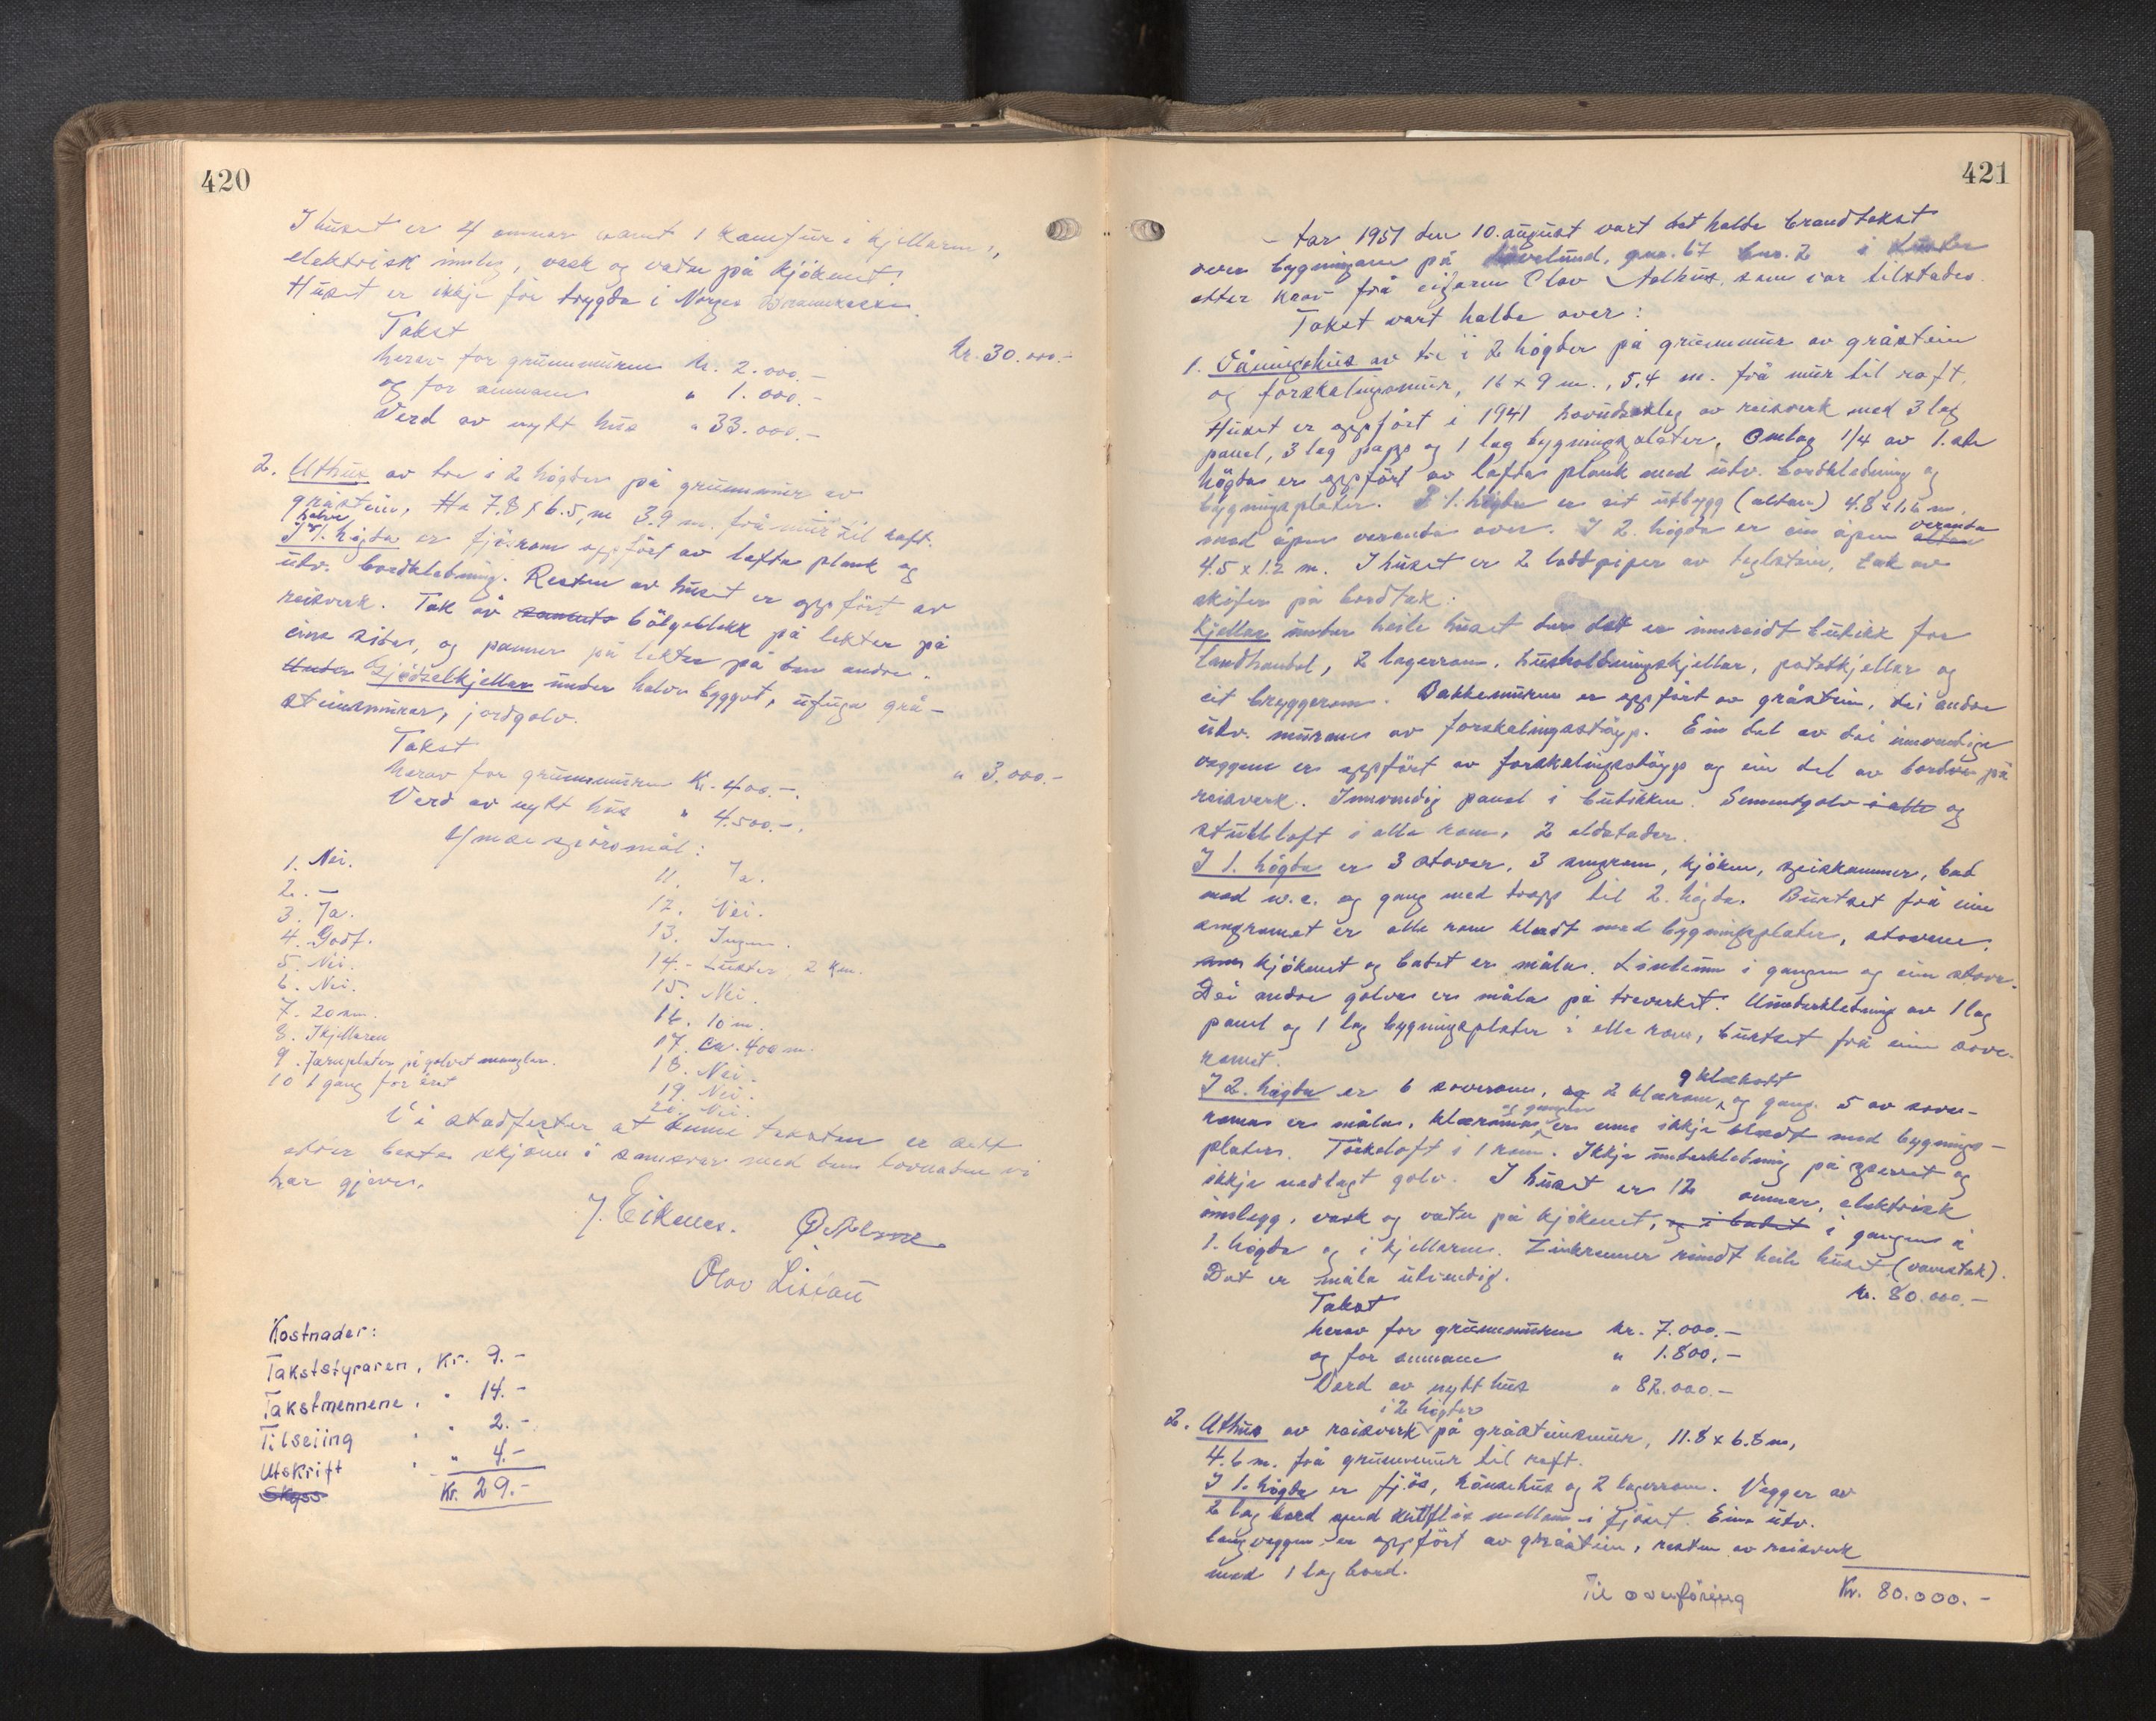 420
I huset er 4 omnar samt 1 komfur i kjellaren,
elektrisk innlegg, vask og vatn på kjökenet.
Huset er ikkje för trygda i Norges Brannkasse.
Takst kr. 30.000.-
herav for grunnmuren kr. 2.000.-
og for omnane " 1.000.-
Verd av nytt hus " 33.000.-
2. Uthus av tre i 2 högder på grunnmur av
gråstein, Ha 7.8 x 6.5 m 3.9 m. frå mur til raft.
halve
I 1. högda er fjösrom oppfört av lafta plank og
utv. bordkledning. Resten av huset er oppfört av
reisverk. Tak av bölgeblekk på lekter på
eine sida, og panner på lekter på den andre.
Under Gjödselkjellar under halve bygget, ufuga grå-
steinsmurar, jordgolv.
Takst " 3.000.-
herav for grunnmuren Kr. 400.-
Verd av nytt hus " 4.500.-
Ymse spörsmål:
1. Nei. 11. Ja.
2. — 12. Nei.
3. Ja. 13. Ingen.
4. Godt. 14. - Luster, 2 km.
5. Nei. 15. Nei.
6. Nei. 16. 10 m.
7. 20 cm. 17. Ca. 400 m.
8. I kjellaren 18. Nei.
9. Jarnplater på golvet manglar. 19. Nei.
10 1 gang for året 20. Nei.
Vi stadfester at denne taksten er sett
etter beste skjönn i samsvar med den lovnaden vi
har gjeve.
J. Eikenes.
Olav Liseau
Kostnader:
Takststyraren, Kr. 9.-
Takstmennene, " 14.-
Tilseiing " 2.-
Utskrift " 4.-
Skyss Kr. 29.-
421
- tar 1951 den 10. august vart det halde brandtakst
over bygningane på Lövelund, gnr. 67 bnr. 2 i Luster
etter krav frå eigaren Olav Aalhus, som var tilstades.
Takst vart halde over:
1. Våningshus av tre i 2 högder på grunnmur av gråstein
og forskalingsmur, 16 x 9 m., 5,4 m. frå mur til raft.
Huset er oppfört i 1941 hovudsakleg av reisverk med 3 lag
panel, 3 lag papp og 1 lag bygningsplater. Omlag 1/4 av 1. ste
högda er oppfört av lafta plank med utv. bordkledning og
bygningsplater. I 1. högda er eit utbygg (altan) 4.8 x 1.6 m.
med åpen veranda over. I 2. högda er ein åpen altan veranda
4.5 x 1.2 m. I huset er 2 loddpiper av teglstein, tak av
skifer på bordtak.
Kjellar under heile huset der det er innreidt butikk for
landhandel, 2 lagerrom, husholdningskjellar, potetkjellar og
eit bryggerom. Bakkemuren er oppfört av gråstein, dei andre
utv. murane av forskalingsstöyp. Ein del av dei innvendige
veggene er oppfört av forskalingsstöyp og ein del av bordve på
reisverk. Innvendig panel i butikken. Sementgolv i alle og
stubbloft i alle rom, 2 eldstader.
I 1. högda er 3 stover, 3 sengrom, kjöken, spiskammer, bad
med w.c. og gang med trapp til 2. högda. Burtset frå eine
sengromet er alle rom kledt med bygningsplater, stovene,
kjökenet og badet er måla. Linoleum i gangen og ein stove.
Dei andre golva er måla på treverket. Underkledning av 1 lag
panel og 1 lag bygningsplater i alle rom, burtset frå ein sove-
romet.
I 2. högda er 6 soverom, og 2 klerom, 9 klekott og gang. 5 av sove-
romma er måla, kleromma og gangen er enno ikkje kledt med bygnings-
plater. Törkeloft i 1 rom. Ikkje underkledning på sperret og
ikkje nedlagt golv. I huset er 12 omnar, elektrisk
innlegg, vask og vatn på kjökenet, og i badet i gangen i
1. högda og i kjellaren. Zinkrenner rundt heile huset, (vannstak).
Det er måla utvendig.
Takst kr. 80.000.-
herav for grunnmuren kr. 7.000.-
og for omnane " 1.800.-
Verd av nytt hus " 82.000.-
i 2 högder
2. Uthus av reisverk på gråsteinsmur, 11.8 x 6.8 m,
4.6 m. frå grunnmur til raft.
I 1. högda er fjös, hönsehus og 2 lagerrom. Vegger av
2 lag bord med kutflis mellom i fjöset. Eine utv.
langveggen er oppfört av gråstein, resten av reisverk
med 1 lag bord.
Til overföring Kr. 80.000.-